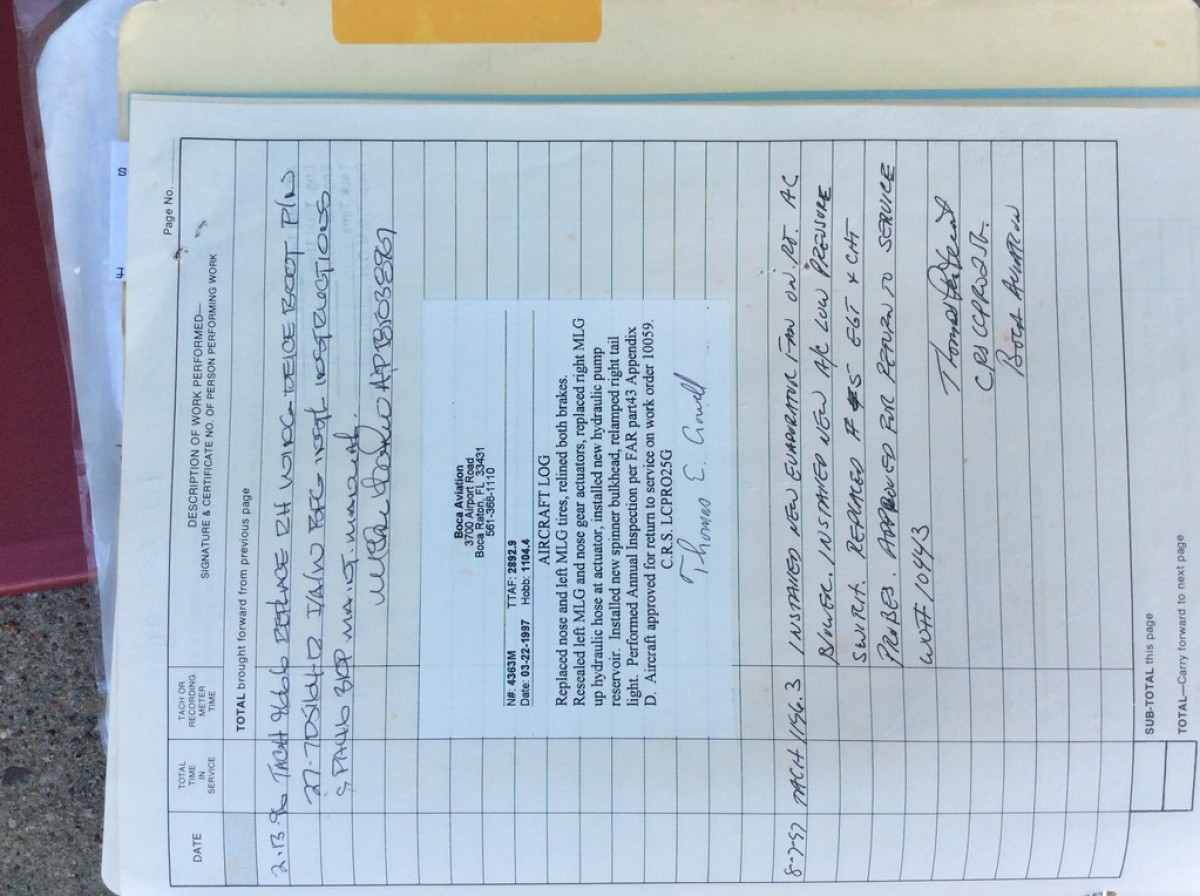 Page No.
DATE
TOTAL TIME IN SERVICE
TACH OR RECORDING METER TIME
DESCRIPTION OF WORK PERFORMED—
SIGNATURE & CERTIFICATE NO. OF PERSON PERFORMING WORK
TOTAL brought forward from previous page
2-13-96 TACH 966.6 REPLACE RH WING DEICE BOOT P/N
I/A/W BFG INSTL INSTRUCTIONS
MAINT. MANUAL.
Boca Aviation
3700 Airport Road
Boca Raton, FL 33431
561-368-1110
N#: 4363M TTAF: 2892.9
Date: 03-22-1997 Hobb: 1104.4
AIRCRAFT LOG
Replaced nose and left MLG tires, relined both brakes.
Resealed left MLG and nose gear actuators, replaced right MLG
up hydraulic hose at actuator, installed new hydraulic pump
reservoir. Installed new spinner bulkhead, relamped right tail
light. Performed Annual Inspection per FAR part43 Appendix
D. Aircraft approved for return to service on work order 10059.
C.R.S. LCPRO25G
Thomas E. Crowell
8-7-97 TACH 1156.3 INSTALLED NEW EVAPORATOR FAN ON RT. AC
BLOWER. INSTALLED NEW A/C LOW PRESSURE
SWITCH. REPLACED #5 EGT & CHT
PROBES. APPROVED FOR RETURN TO SERVICE
WO# 10443
BOCA AVIATION
SUB-TOTAL this page
TOTAL—Carry forward to next page